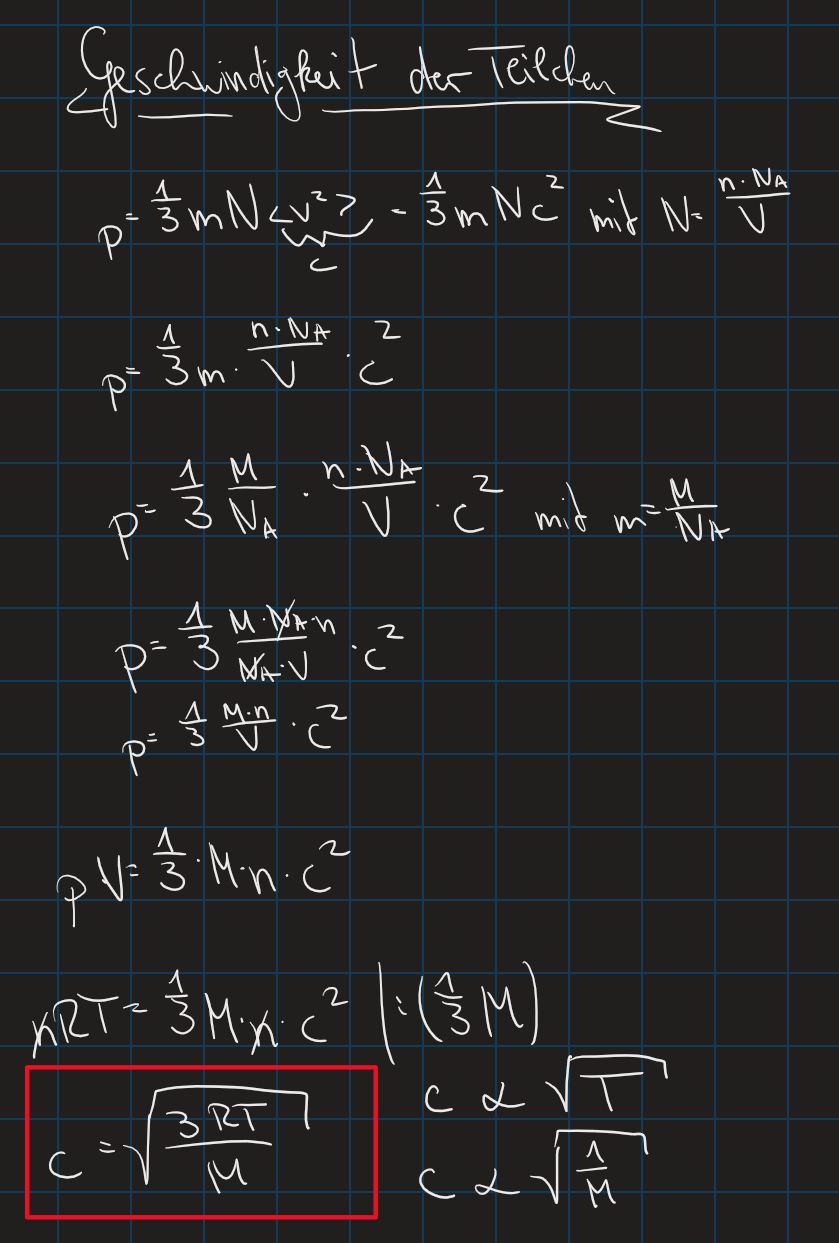 Geschwindigkeit der Teilchen
p = 1/3 m N <v²> = 1/3 m N c² mit N = n · N_A / V
c
p = 1/3 m · n · N_A / V · c²
p = 1/3 M / N_A · n · N_A / V · c² mit m = M / N_A
p = 1/3 M · N_A · n / N_A · V · c²
p = 1/3 M · n / V · c²
p V = 1/3 · M · n · c²
nRT = 1/3 M · n · c² | : (1/3 M)
c = √(3 RT / M)
c ∝ √T
c ∝ √(1 / M)